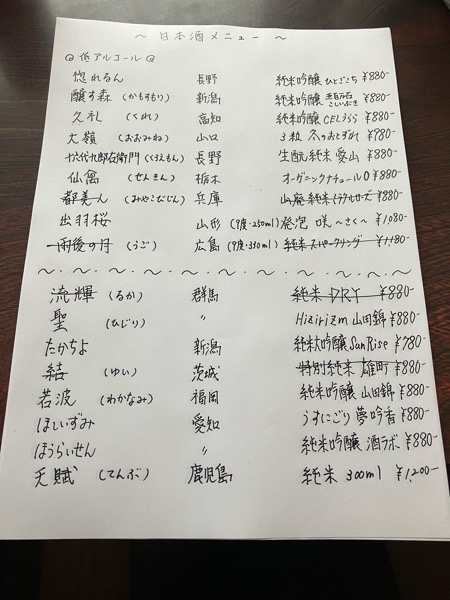 ～ 日本酒メニュー ～
◎ 低アルコール ◎
惚れるん 長野 純米吟醸 ひとごこち ¥880-
醸す森 (かもすもり) 新潟 純米吟醸 五百万石 こいいぶき ¥880-
久礼 (くれ) 高知 純米吟醸 CEL355 ¥880-
大嶺 (おおみね) 山口 3粒 冬のおとずれ ¥980-
十六代九郎右衛門 (くろえもん) 長野 生酛 純米 愛山 ¥880-
仙禽 (せんきん) 栃木 オーガニックナチュール0 ¥880-
都美人 (みやこびじん) 兵庫 山廃 純米 ¥880-
出羽桜 山形 (9度・250ml) 発泡 咲〜さく〜 ¥1,080-
雨後の月 (うご) 広島 (9度・330ml) 純米スパークリング ¥1,180-
流輝 (るか) 群馬 純米 DRY ¥880-
聖 (ひじり) 〃 Hizirizm 山田錦 ¥880-
たかちよ 新潟 純米大吟醸 SunRise ¥780-
結 (ゆい) 茨城 特別純米 雄町 ¥880-
若波 (わかなみ) 福岡 純米吟醸 山田錦 ¥880-
ほしいずみ 愛知 うすにごり 夢吟香 ¥880-
ほうらいせん 〃 純米吟醸 酒ラボ ¥880-
天賦 (てんぶ) 鹿児島 純米 300ml ¥1,200-